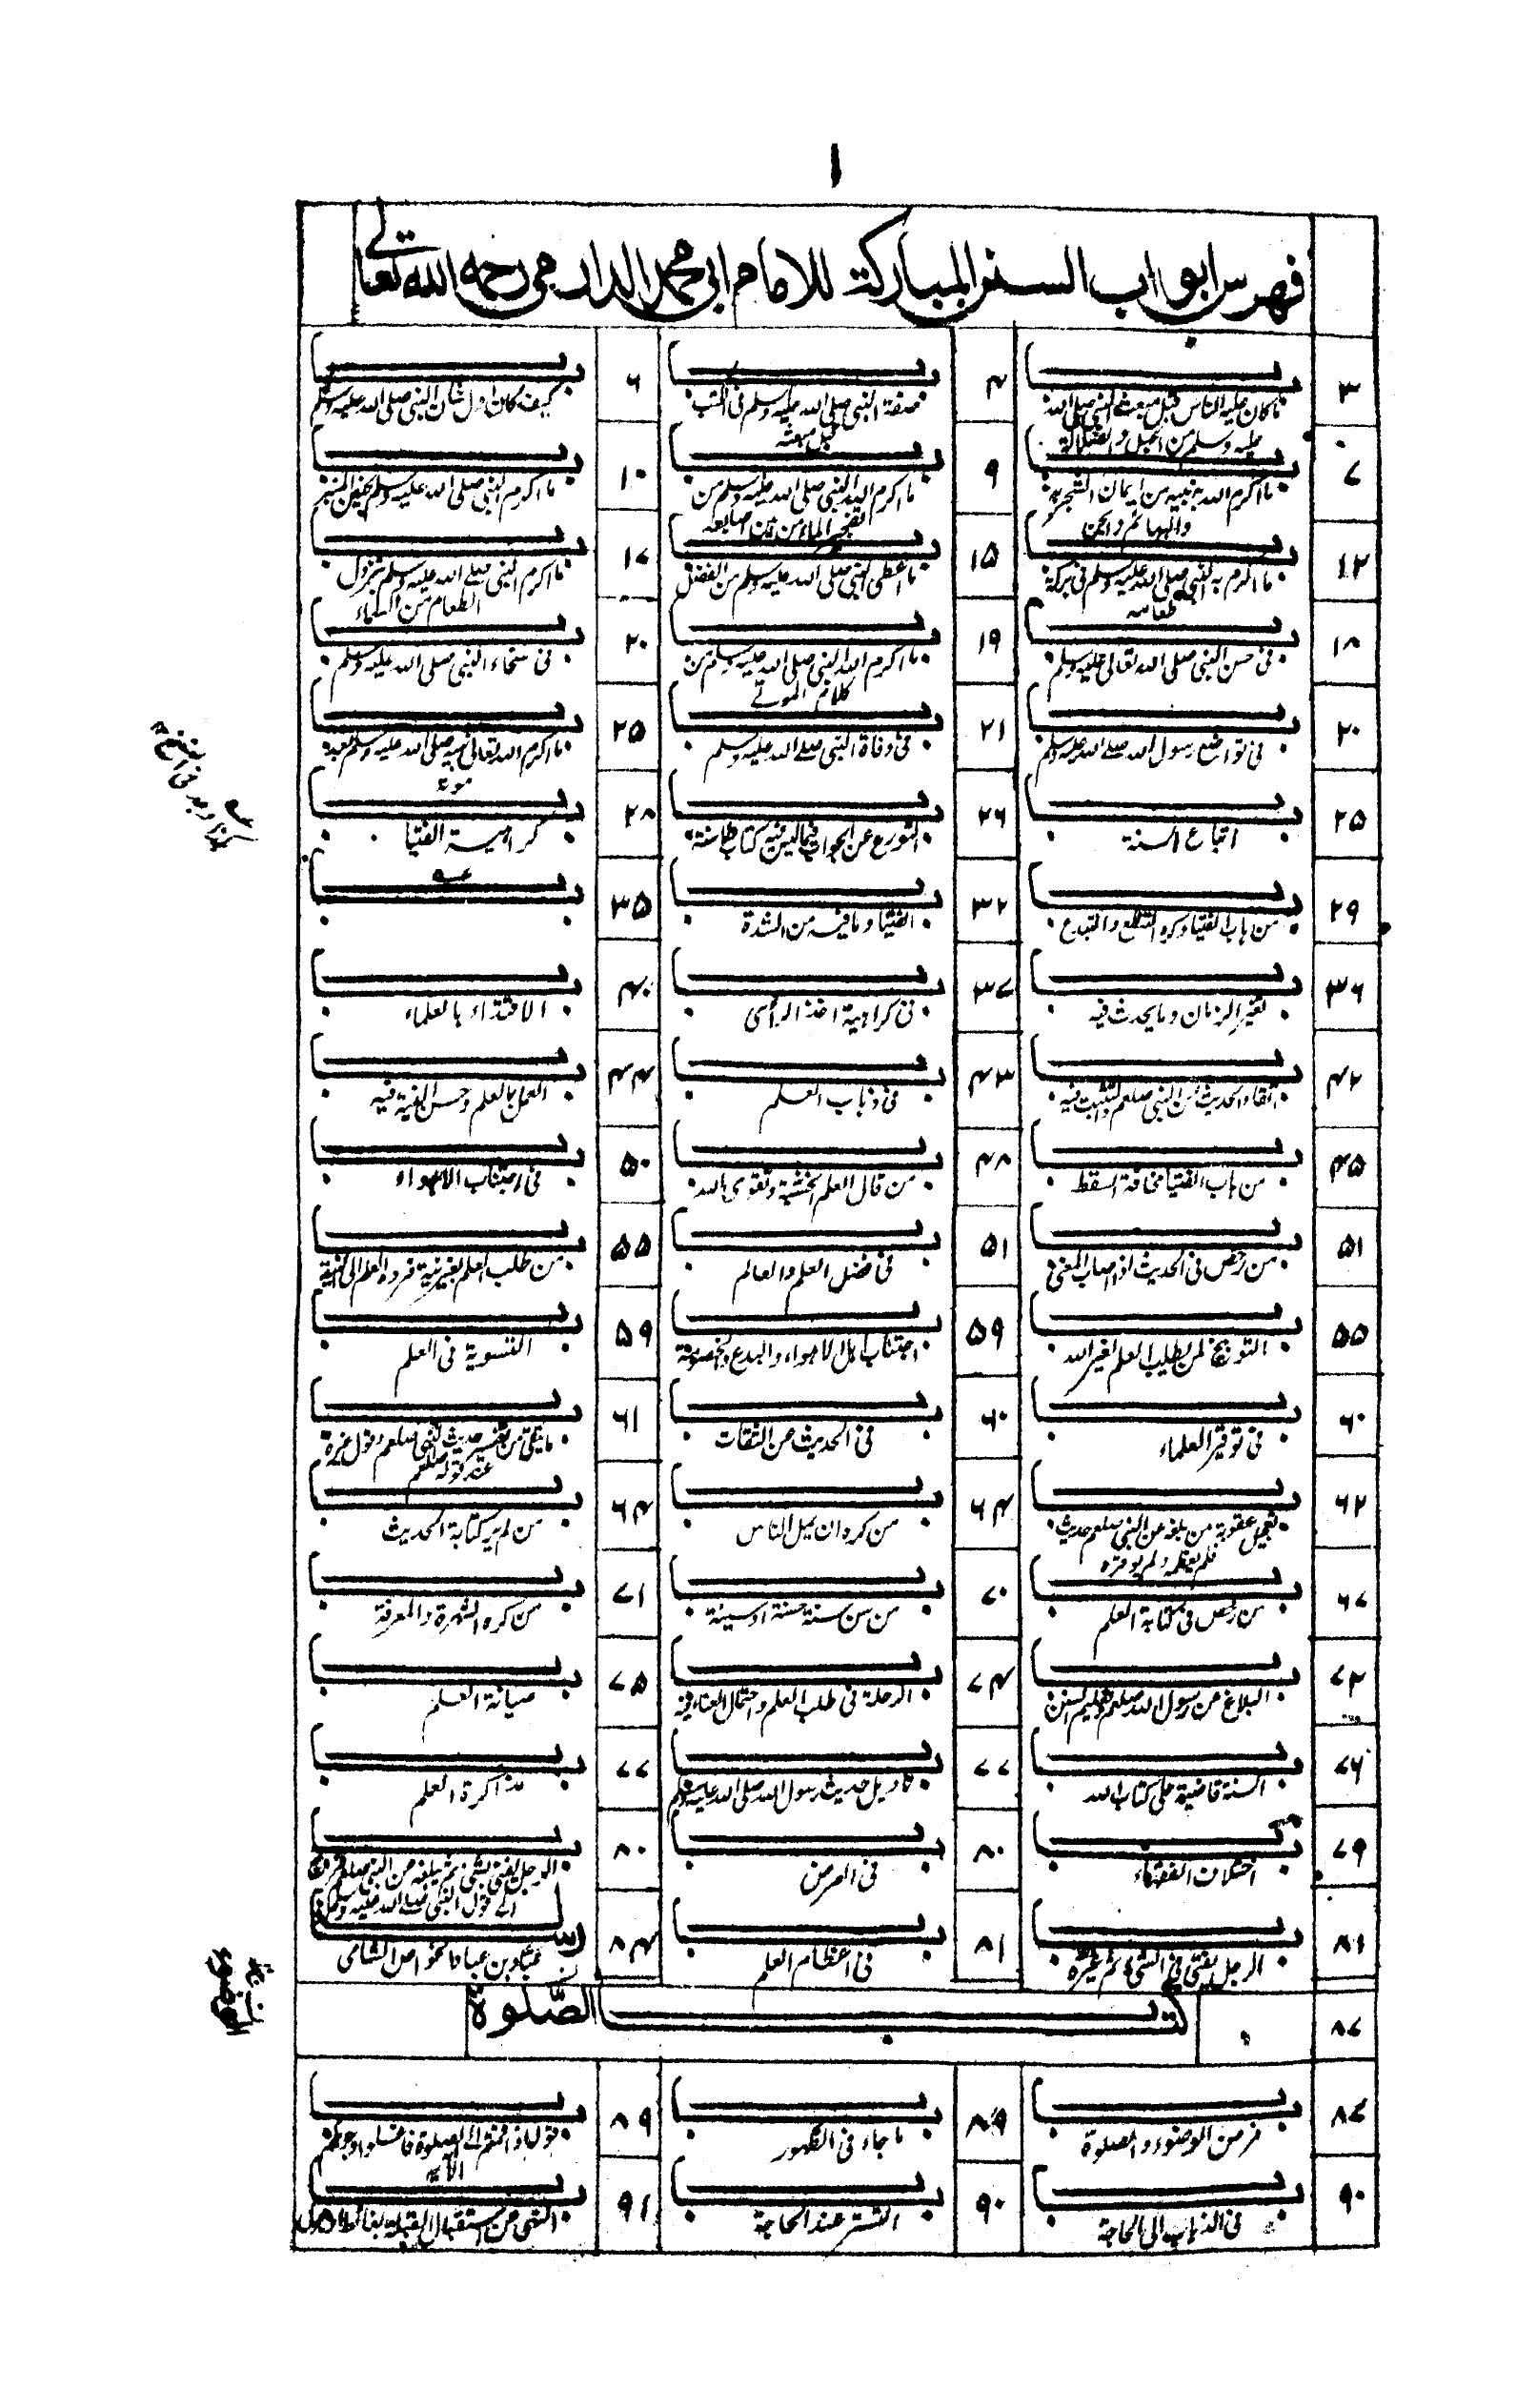 ١
فهرس ابواب السنن المباركة للامام ابي محمد الدارمي رحمه الله تعالى
٣ باب ما كان عليه الناس قبل مبعث النبي صلى الله عليه وسلم من الجهل والضلالة
٤ باب صفة النبي صلى الله عليه وسلم في الكتب قبل مبعثه
٦ باب كيف كان اول شان النبي صلى الله عليه وسلم
٧ باب ما اكرم الله به نبيه من ايمان الشجر به والبهائم والجن
٩ باب ما اكرم الله النبي صلى الله عليه وسلم من تفجير الماء من بين اصابعه
١٠ باب ما اكرم النبي صلى الله عليه وسلم بحنين المنبر
١٢ باب ما اكرم به النبي صلى الله عليه وسلم في بركة طعامه
١٥ باب ما اعطى النبي صلى الله عليه وسلم من الفضل
١٧ باب ما اكرم النبي صلى الله عليه وسلم بنزول الطعام من السماء
١٨ باب في حسن النبي صلى الله تعالى عليه وسلم
١٩ باب ما اكرم الله النبي صلى الله عليه وسلم من كلام الموتى
٢٠ باب في سخاء النبي صلى الله عليه وسلم
٢٠ باب في تواضع رسول الله صلى الله عليه وسلم
٢١ باب في وفاة النبي صلى الله عليه وسلم
٢٥ باب ما اكرم الله تعالى نبيه صلى الله عليه وسلم بعد موته
٢٥ باب اتباع السنة
٢٦ باب التورع عن الجواب فيما ليس فيه كتاب ولا سنة
٢٨ باب كراهية الفتيا
٢٩ باب من هاب الفتيا وكره التنطع والتبدع
٣٢ باب الفتيا وما فيه من الشدة
٣٥ باب
٣٦ باب تغير الزمان وما يحدث فيه
٣٧ باب في كراهية اخذ الرأى
٤٠ باب الاقتداء بالعلماء
٤٢ باب اتقاء الحديث عن النبي صلعم والتثبت فيه
٤٣ باب في ذهاب العلم
٤٤ باب العمل بالعلم وحسن النية فيه
٤٥ باب من هاب الفتيا مخافة السقط
٤٨ باب من قال العلم الخشية وتقوى الله
٥٠ باب في اجتناب الاهواء
٥١ باب من رخص في الحديث اذا اصاب المعنى
٥١ باب في فضل العلم والعالم
٥٥ باب من طلب العلم بغير نية فرده العلم الى النية
٥٥ باب التوبيخ لمن يطلب العلم لغير الله
٥٩ باب اجتناب اهل الاهواء والبدع والخصومة
٥٩ باب التسوية في العلم
٦٠ باب في توقير العلماء
٦٠ باب في الحديث عن الثقات
٦١ باب ما يتقى من تفسير حديث النبي صلعم وقول غيره عند قوله صلعم
٦٢ باب تعجيل عقوبة من بلغه عن النبي صلعم حديث فلم يعظمه ولم يوقره
٦٤ باب من كره ان يمل الناس
٦٤ باب من لم ير كتابة الحديث
٦٧ باب من رخص في كتابة العلم
٧٠ باب من سن سنة حسنة او سيئة
٧١ باب من كره الشهرة والمعرفة
٧٢ باب البلاغ عن رسول الله صلعم وتعليم السنن
٧٤ باب الرحلة في طلب العلم واحتمال العناء فيه
٧٥ باب صيانة العلم
٧٦ باب السنة قاضية على كتاب الله
٧٧ باب تاويل حديث رسول الله صلى الله عليه وسلم
٧٧ باب مذاكرة العلم
٧٩ باب اختلاف الفقهاء
٨٠ باب في العرض
٨٠ باب الرجل يفتي بشئ ثم يبلغه عن النبي صلعم فرجع الى قول النبي صلى الله عليه وسلم
٨١ باب الرجل يفتي في الشئ ثم غيره
٨١ باب في اعظام العلم
٨٤ رسالة عباد بن عباد الخواص الشامى
٨٧ كتاب الصلوة
٨٧ باب فرض الوضوء والصلوة
٨٩ باب ما جاء في الطهور
٨٩ باب قوله اذا قمتم الى الصلوة فاغسلوا وجوهكم الآية
٩٠ باب في الذهاب الى الحاجة
٩٠ باب التستر عند الحاجة
٩١ باب النهي عن استقبال القبلة بغائط او بول